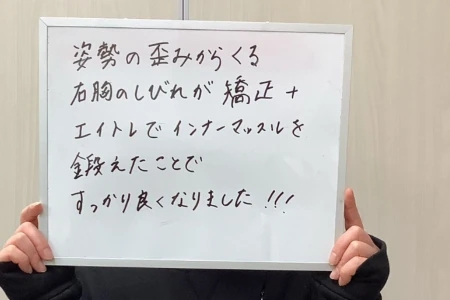 姿勢の歪みからくる
右胸のしびれが矯正+
エイトレでインナーマッスルを
鍛えたことで
すっかり良くなりました!!!